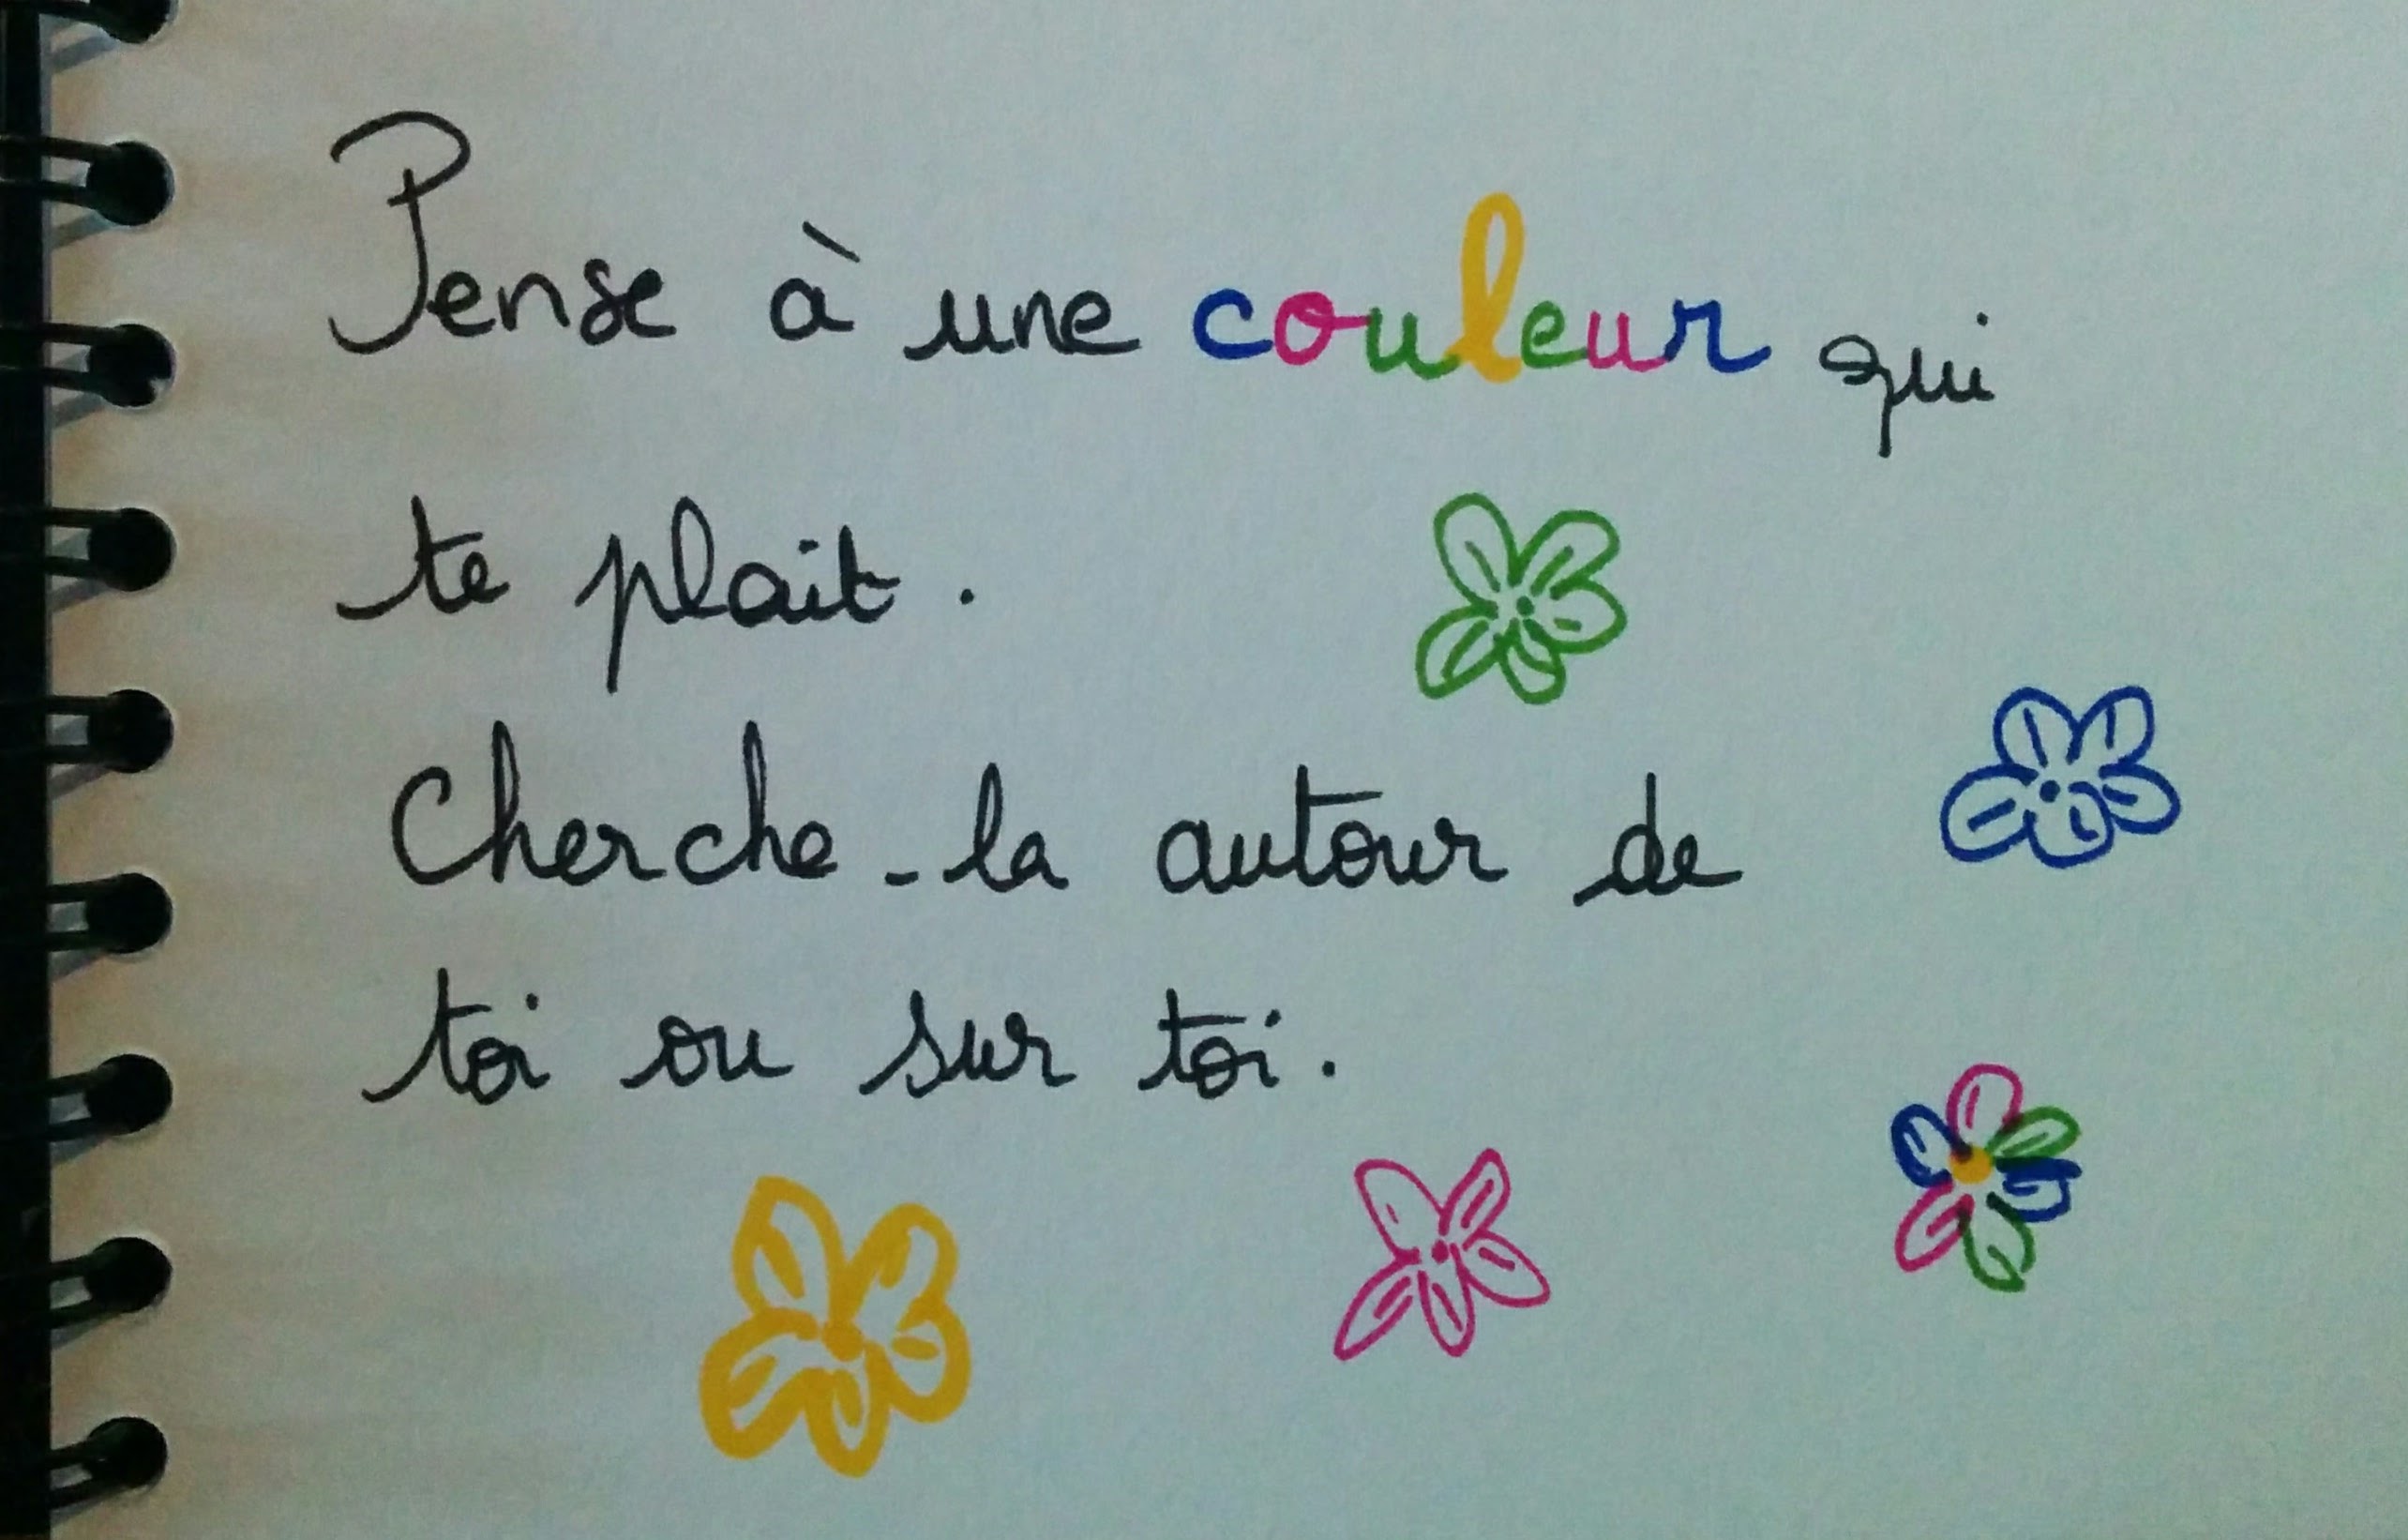 Pense à une couleur qui
te plait.
Cherche-la autour de
toi ou sur toi.